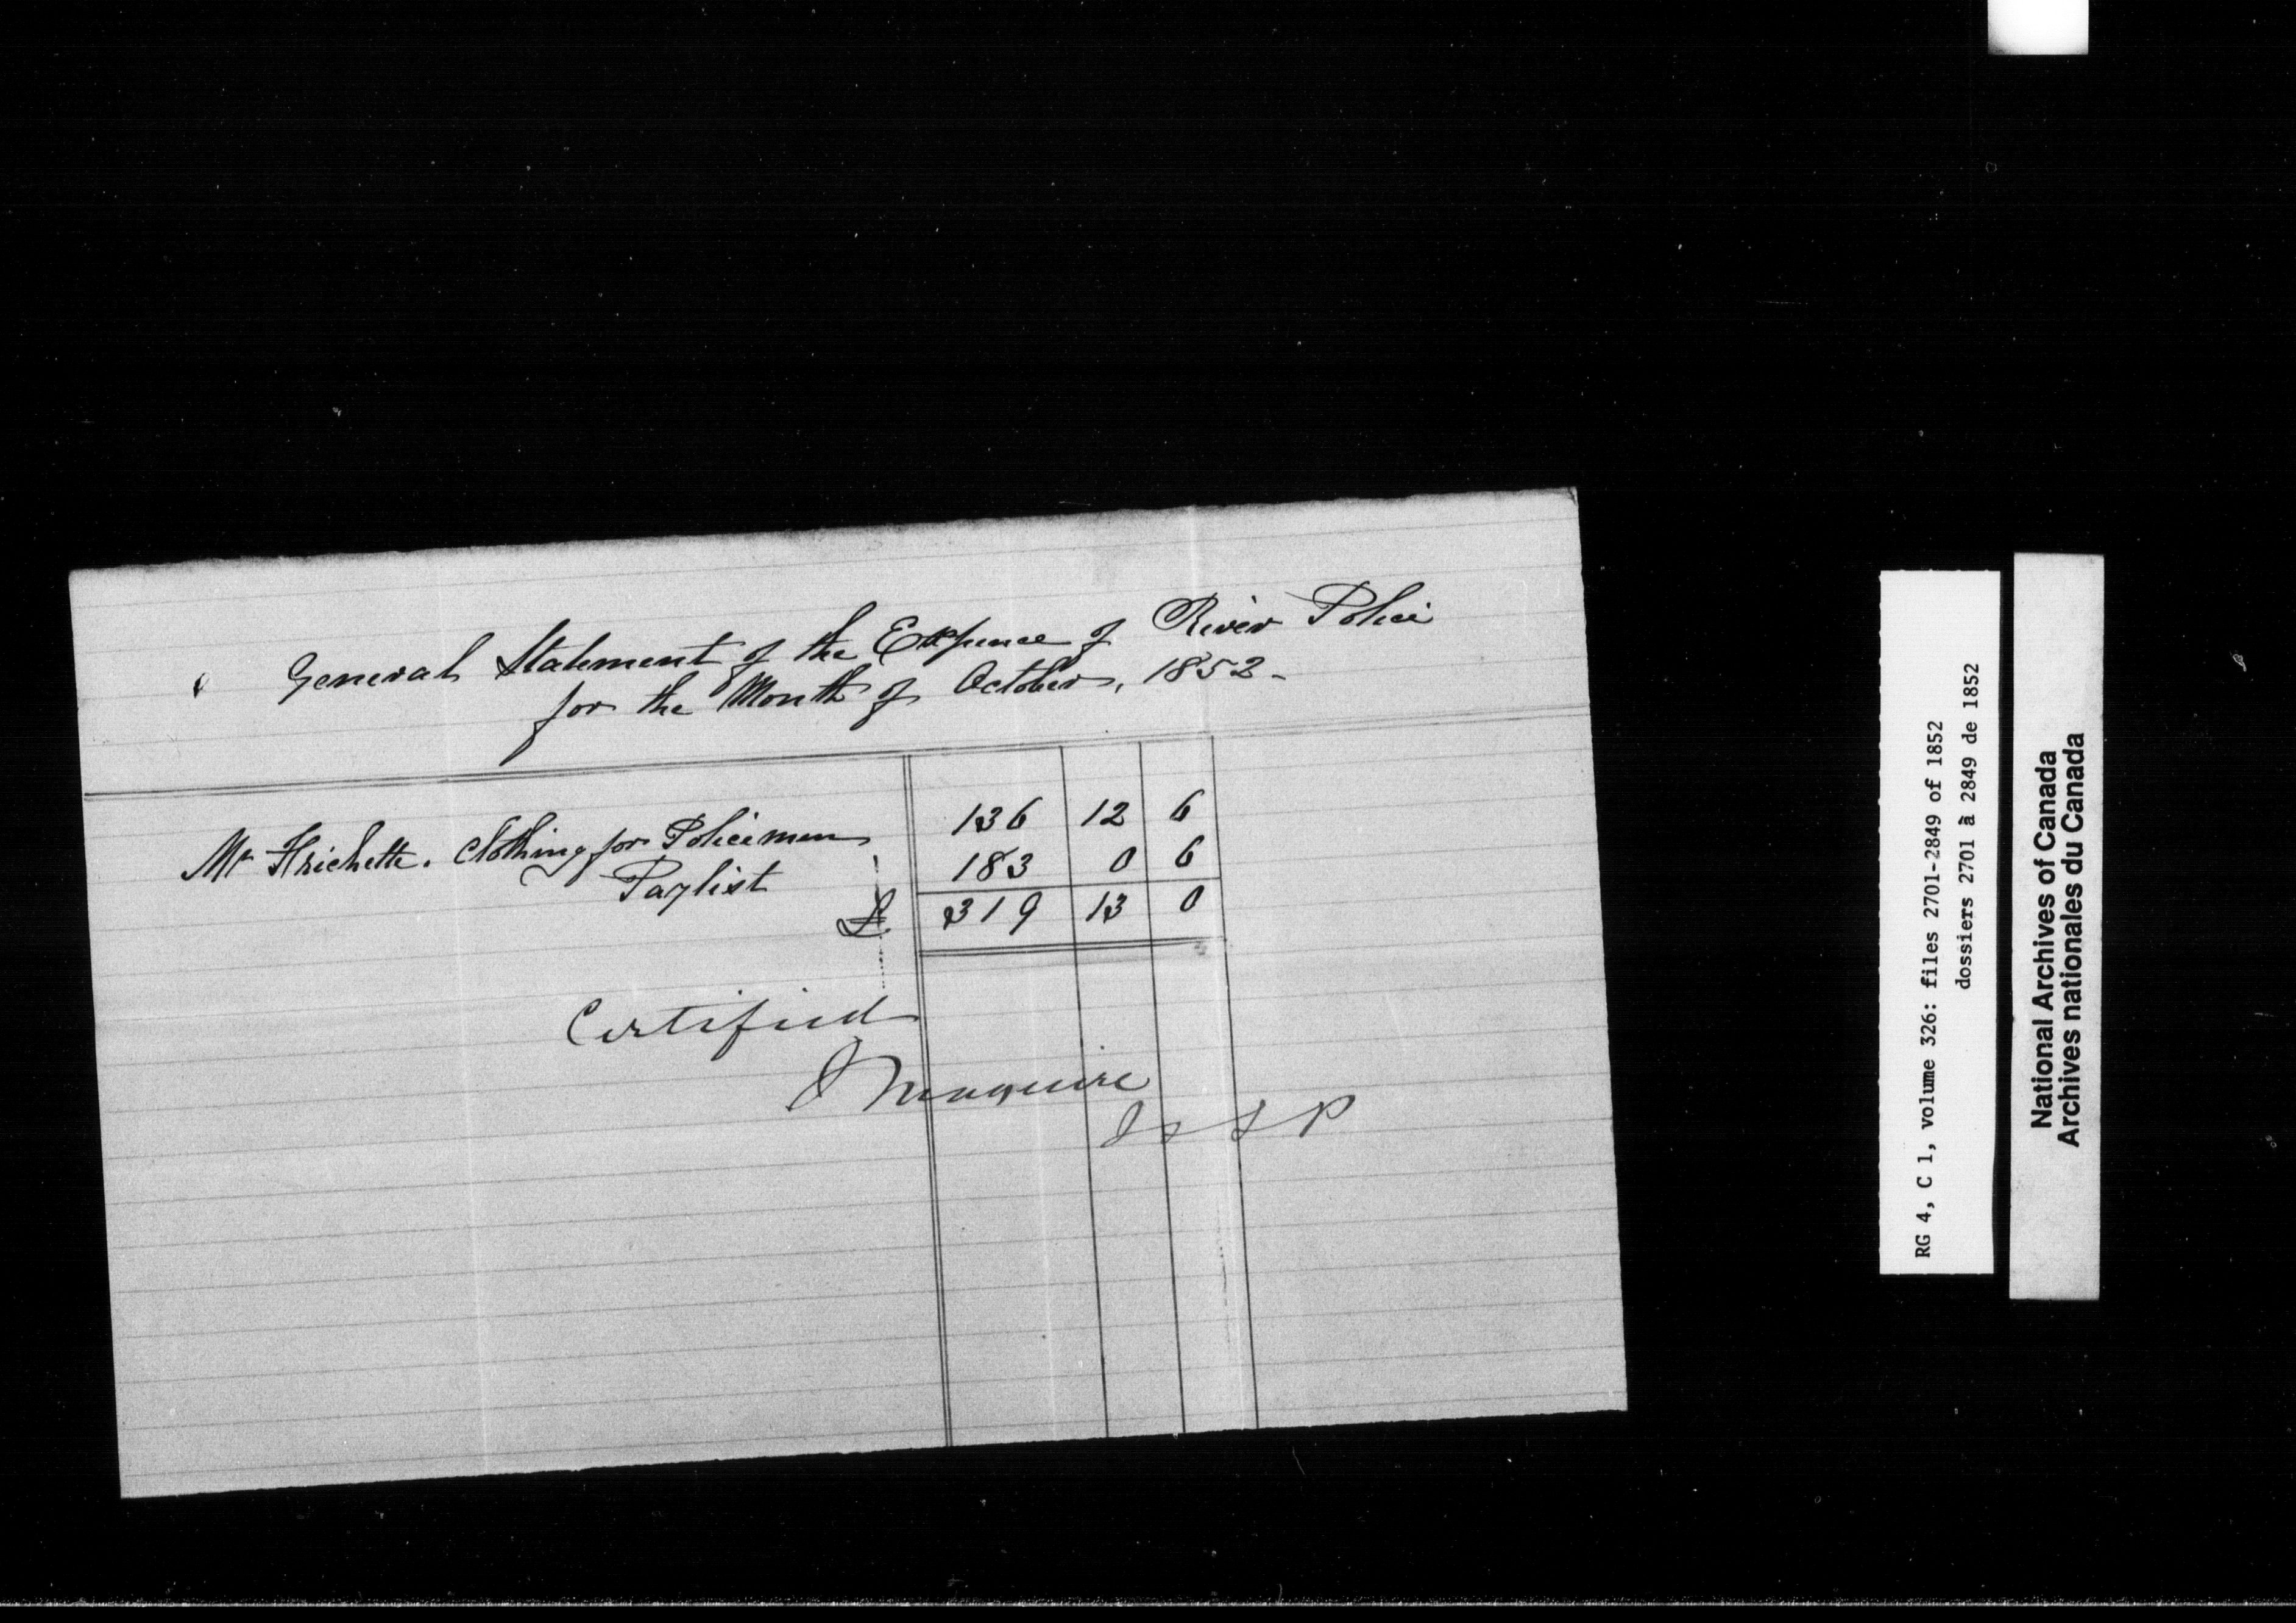 General Statement of the Expence of River Police
for the Month of October, 1852-
Mr Frichette. Clothing for Policemen 136 12 6
Paylist 183 0 6
£ 319 13 0
Certified
J Maguire
I & S P
RG 4, C 1, volume 326: files 2701-2849 of 1852
dossiers 2701 à 2849 de 1852
National Archives of Canada
Archives nationales du Canada